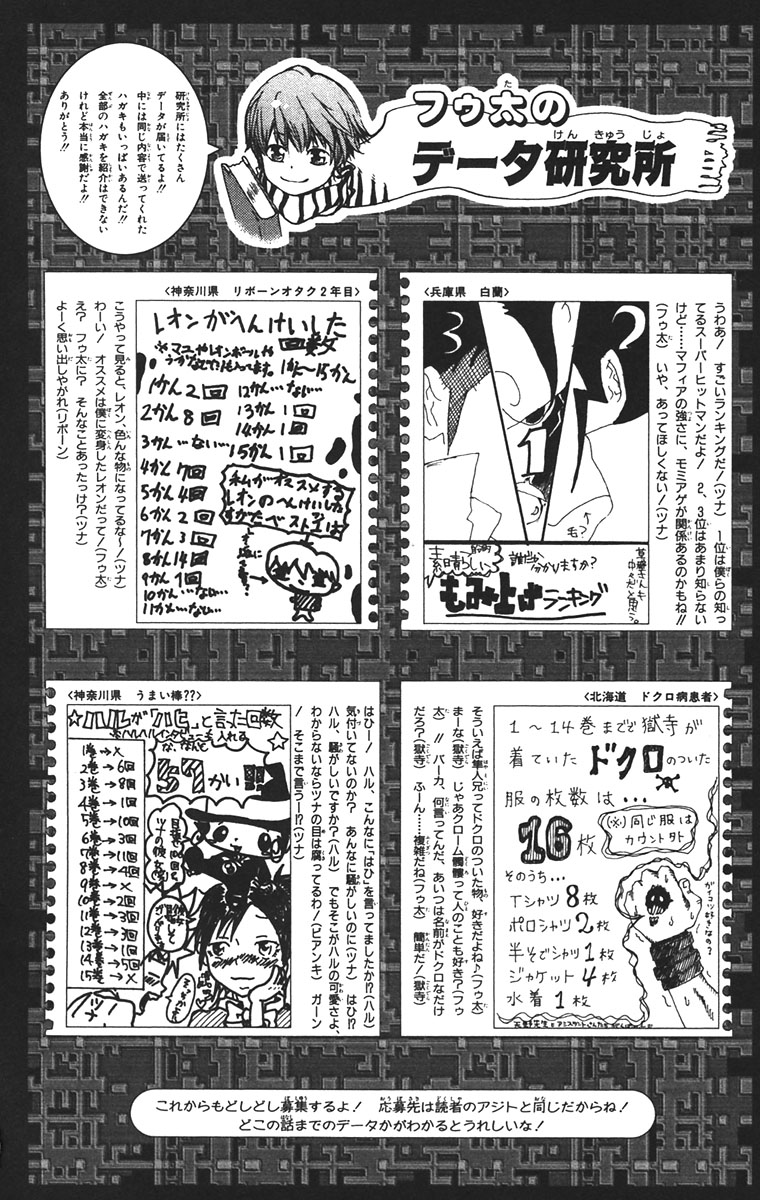 フゥ太の
データ研究所
研究所にはたくさん
データが届いてるよ!!
中には同じ内容で送ってくれた
ハガキもいっぱいあるんだ!!
全部のハガキを紹介はできない
けれど本当に感謝だよ!!
ありがとう!!
〈兵庫県 白蘭〉
うわあ! すごいランキングだ!(ツナ) 1位は僕らの知っ
てるスーパーヒットマンだよ! 2、3位はあまり知らない
けど……マフィアの強さに、モミアゲが関係あるのかもね!!
(フゥ太) いや、あってほしくない!(ツナ)
3
2
1
毛?
素晴らしい
誰だか分かりますか?
もみ上げランキング
〈神奈川県 リボーンオタク2年目〉
レオンがへんけいした
回数
1かん〜15かん
1かん2回
2かん8回
3かん…ない…
4かん7回
5かん4回
6かん2回
7かん3回
8かん14回
9かん1回
10かん…ない…
11かん…ない…
12かん…ない…
13かん1回
14かん1回
15かん1回
私がオススメする
レオンのへんけいした
すがたベスト1は
こうやって見ると、レオン、色んな物になってるな〜!(ツナ)
わーい! オススメは僕に変身したレオンだって!(フゥ太)
え? フゥ太に? そんなことあったっけ?(ツナ)
よーく思い出しやがれ(リボーン)
〈北海道 ドクロ病患者〉
1〜14巻までで獄寺が
着ていたドクロのついた
服の枚数は…
16枚
(※)同じ服は
カウント外
そのうち…
Tシャツ8枚
ポロシャツ2枚
半そでシャツ1枚
ジャケット4枚
水着1枚
ガイコツ好きなの?
そういえば隼人兄ってドクロのついた物、好きだよね♪(フゥ太)
まーな(獄寺) じゃあクローム髑髏って人のことも好き?(フゥ
太) !! バーカ、何言ってんだ、あいつは名前がドクロなだけ
だろ?(獄寺) ふーん……複雑だね(フゥ太) 簡単だ!(獄寺)
〈神奈川県 うまい棒??〉
☆ハルが「ハヒ」と言った回数
な、なんと
57かい!!
1巻→×
2巻→6回
3巻→8回
4巻→1回
5巻→10回
6巻→3回
7巻→11回
8巻→4回
9巻→×
10巻→2回
11巻→3回
12巻→3回
13巻→1回
14巻→5回
15巻→×
ツナ
はひー! ハル、こんなに「はひ」を言ってましたか!?(ハル)
気付いてないのか? あんなに騒がしいのに(ツナ) はひ!?
ハル、騒がしいですか?(ハル) でもそこがハルの可愛さよ、
わからないならツナの目は腐ってるわ!(ビアンキ) ガーン
! そこまで言うー!?(ツナ)
これからもどしどし募集するよ! 応募先は読者のアジトと同じだからね!
どこの話までのデータかがわかるとうれしいな!